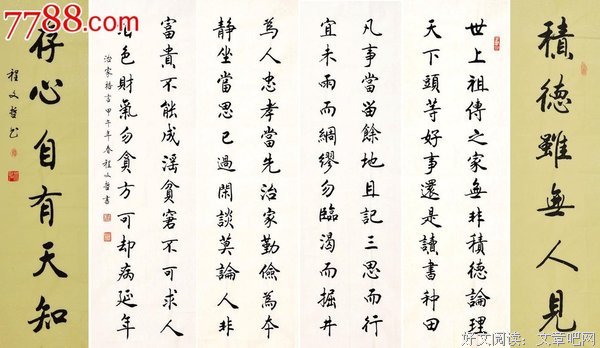 7788.com
積德雖無人見
世上祖傳之家無非積德論理
天下頭等好事還是讀書種田
凡事當留餘地且記三思而行
宜未雨而綢繆勿臨渴而掘井
為人忠孝當先治家勤儉為本
靜坐當思己過閑談莫論人非
富貴不能成淫貧窘不可求人
酒色財氣勿貪方可却病延年
治家格言甲午年春程文哲書
存心自有天知
程文哲書
好文阅读：文章吧网